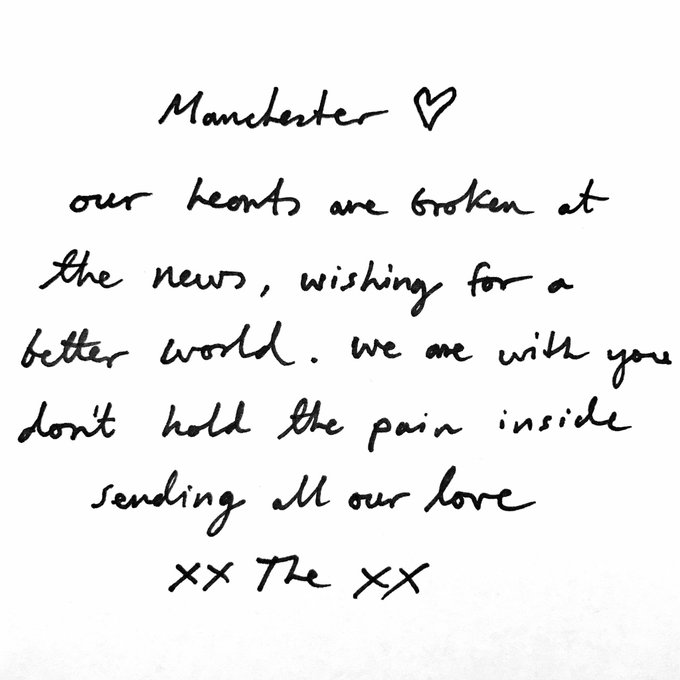 Manchester ♡
our hearts are broken at
the news, wishing for a
better world. we are with you
don't hold the pain inside
sending all our love
xx The xx